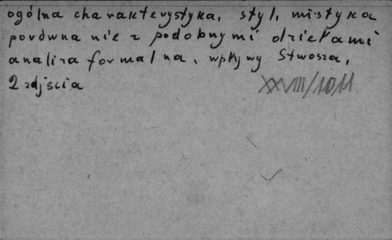 ogólna charakterystyka, styl, mistyka
porówna nie z podobnymi dziełami
analiza formalna, wpływy Stwosza,
2 zdjścia
XXVIII/1011